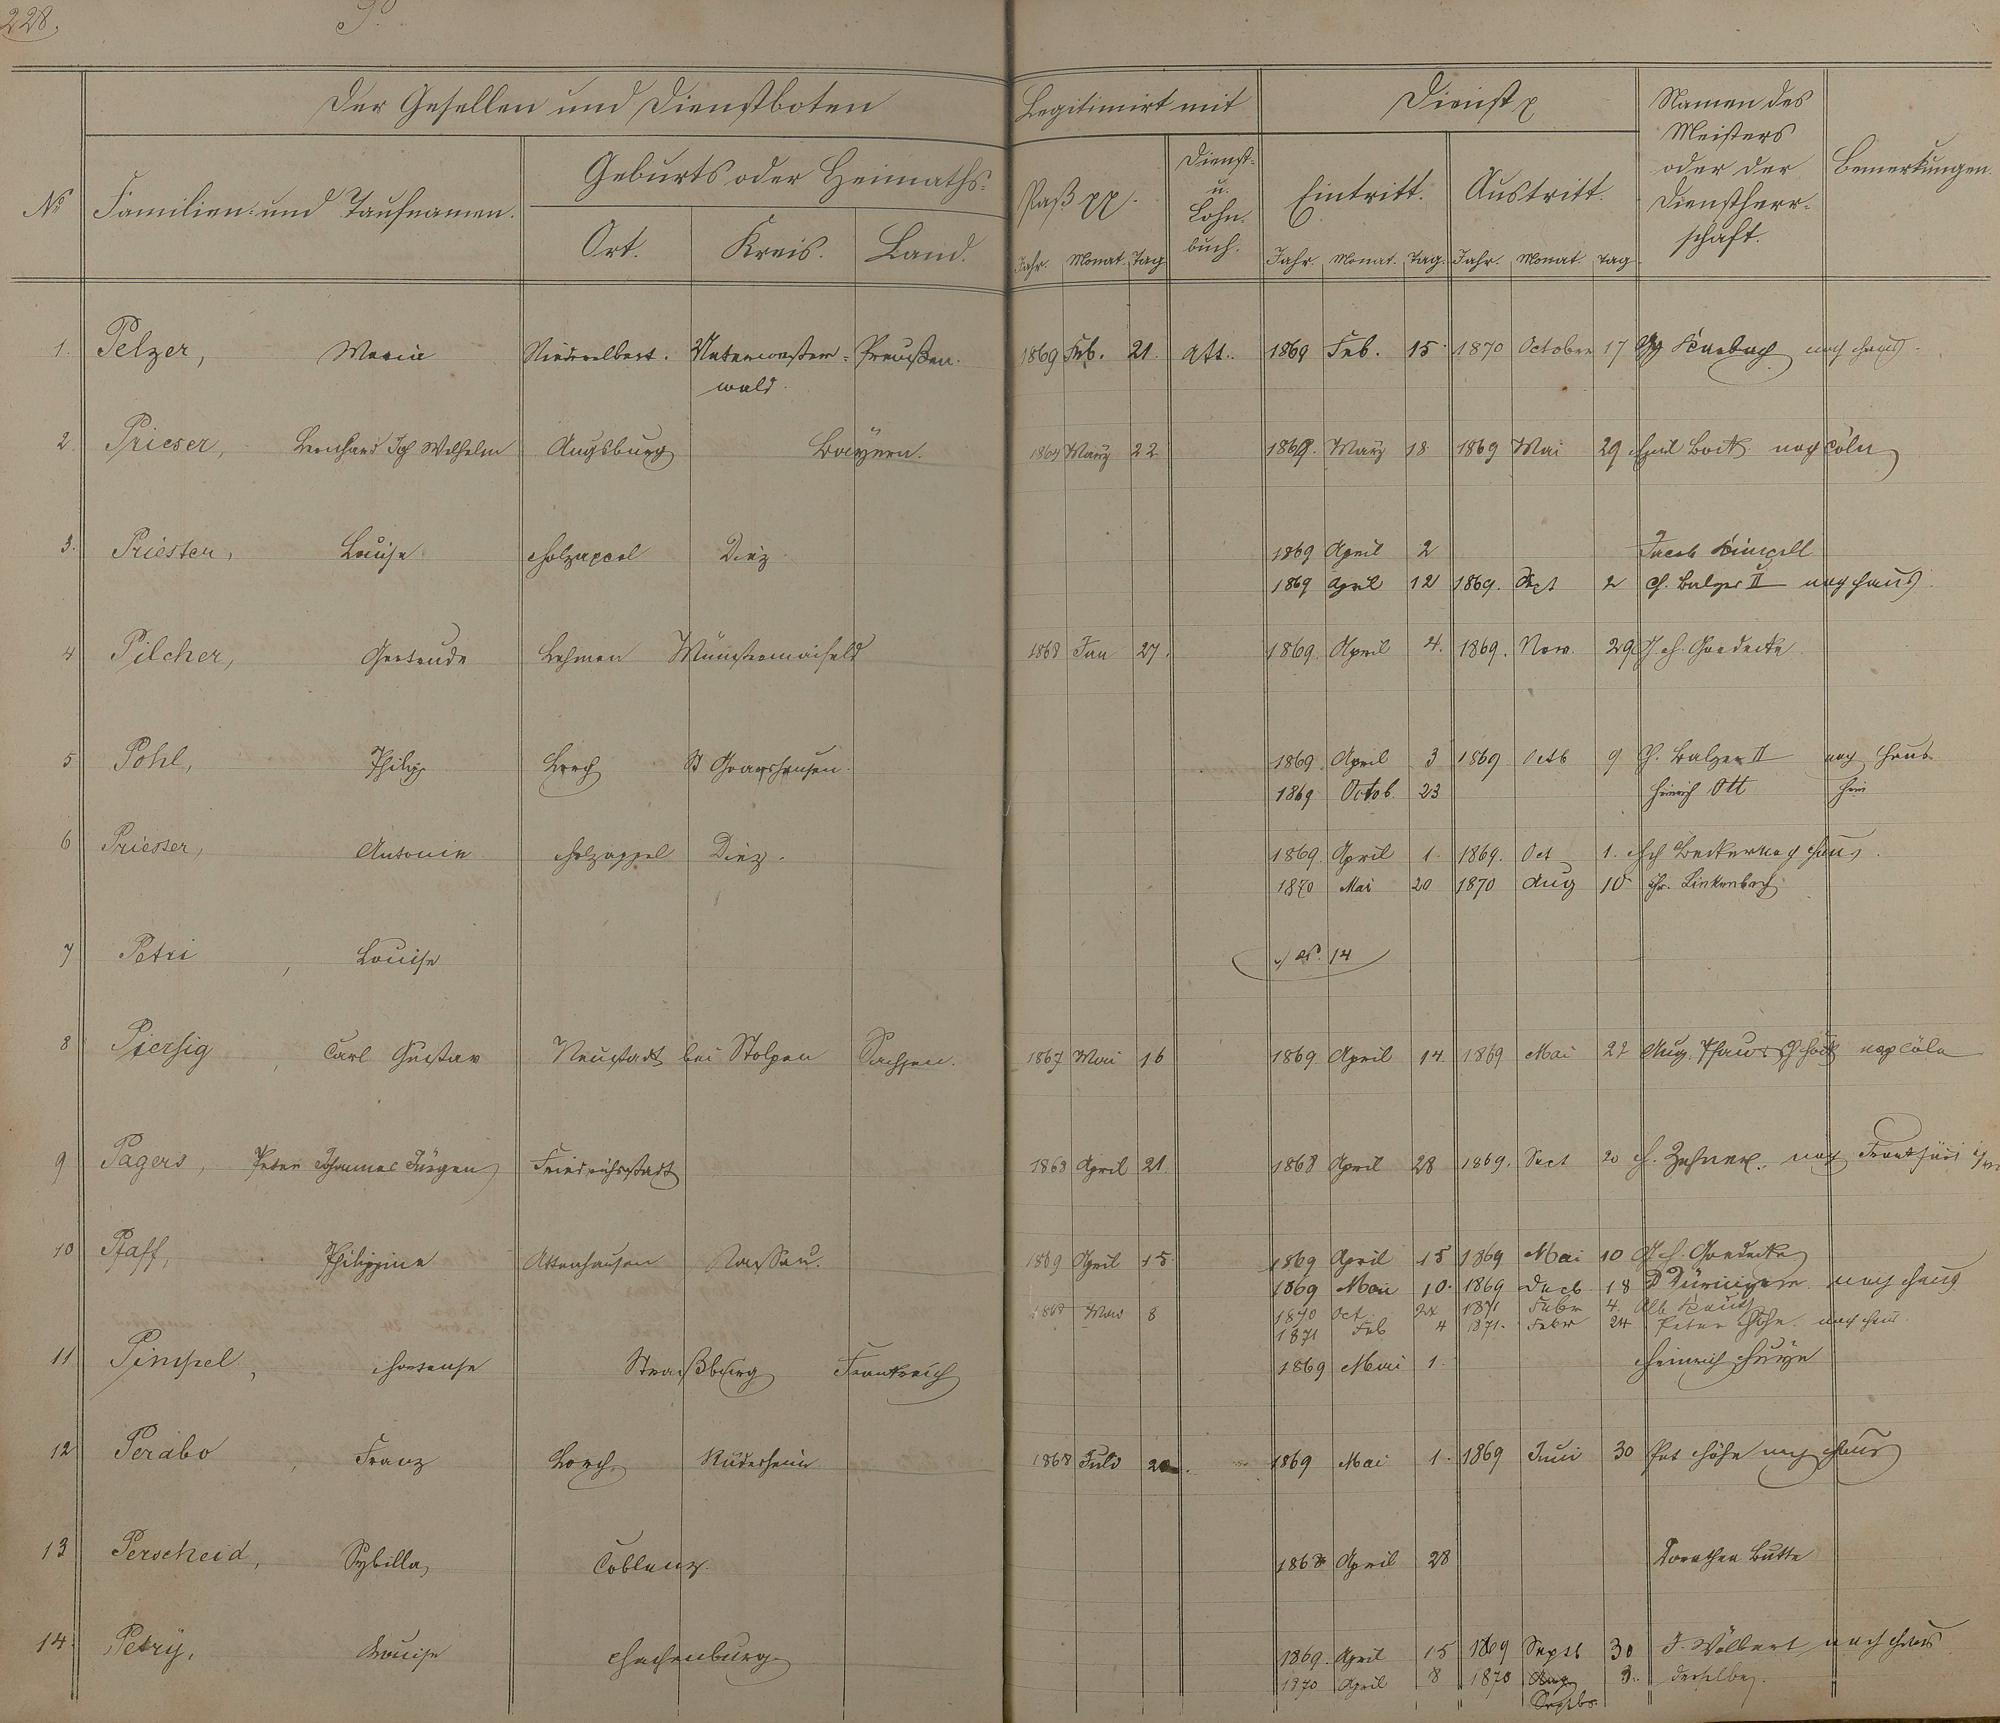 228.
P.
Der Gesellen und Dienstboten
Legitimirt mit
Dienst
Namen des Meisters oder der Dienstherrschaft.
Bemerkungen.
No
Familien- und Taufnamen.
Geburts oder Heimaths-
Ort. Kreis. Land.
Paß pp.
Dienst- u. Lohn- buch.
Eintritt. Austritt.
Jahr. Monat. Tag Jahr. Monat. Tag. Jahr. Monat. Tag
1. Pelzer, Maria Niederelbert. Unterwester- Preußen. 1869 Feb. 21. Att. 1869 Feb. 15. 1870 October 17 nach Haus.
wald.
2. Prieser, Bernhard Jos Wilhelm Augsburg Bayern. März 22 1869. März 18 1869 Mai 29 nach Cöln
3. Priester, Louise Holzappel Diez 1869 April 2 Jacob Kimpell
1869 April 12 1869. Sept 2 H. Balzer II nach Haus
4 Pilcher, Gertrude Lehmen Münstermaifeld 1868 Jan 27. 1869. April 4. 1869. Nov. 29 Goedecke
5 Pohl, Philipp Lorch St Goarshausen. 1869. April 3 1869 Octb 9 Balzer II nach Haus
1869 Octob. 23 Heinrich Ott
6 Priester, Antonie Holzappel Diez. 1869. April 1. 1869. Oct 1. Becker nach Haus.
1870 Mai 20 1870 Aug 10 Chr. Linkenbach
7 Petri, Louise No. 14
8 Piersig, Carl Gustav Neustadt bei Stolpen Sachsen. 1867 Mai 16 1869 April 14. 1869 Mai 22 Aug. nach Cöln
9 Pagers, Peter Johannes Jürgen Friedrichstadt 1868 April 21. 1868 April 28 1869. Sept 20 H. nach
10 Pfaff, Philippine Attenhausen Nassau. 1869 April 15 1869 April 15 1869 Mai 10 Goedecke
1869 Mai 10. 1869 Decb 18 nach Haus
8 1870 Oct. 24 1871 Febr 4.
1871 Feb 4 1871. Febr 24 Peter Höhn. nach Haus
11 Pimpel, Hortense Straßburg Frankreich 1869 Mai 1. Heinrich
12 Perabo, Franz Lorch Rüdesheim 1868 1869 Mai 1. 1869 Juni 30 Pet Höhn nach Haus
13 Perscheid, Sybilla, Coblenz. 1868 April 28 Dorothea Butte
14. Petry, Louise Hachenburg 1869. April 15 1869 Septb 30 J. Wölbert nach Haus
1870 April 8 1870 Aug 3. derselbe.
Septbr.